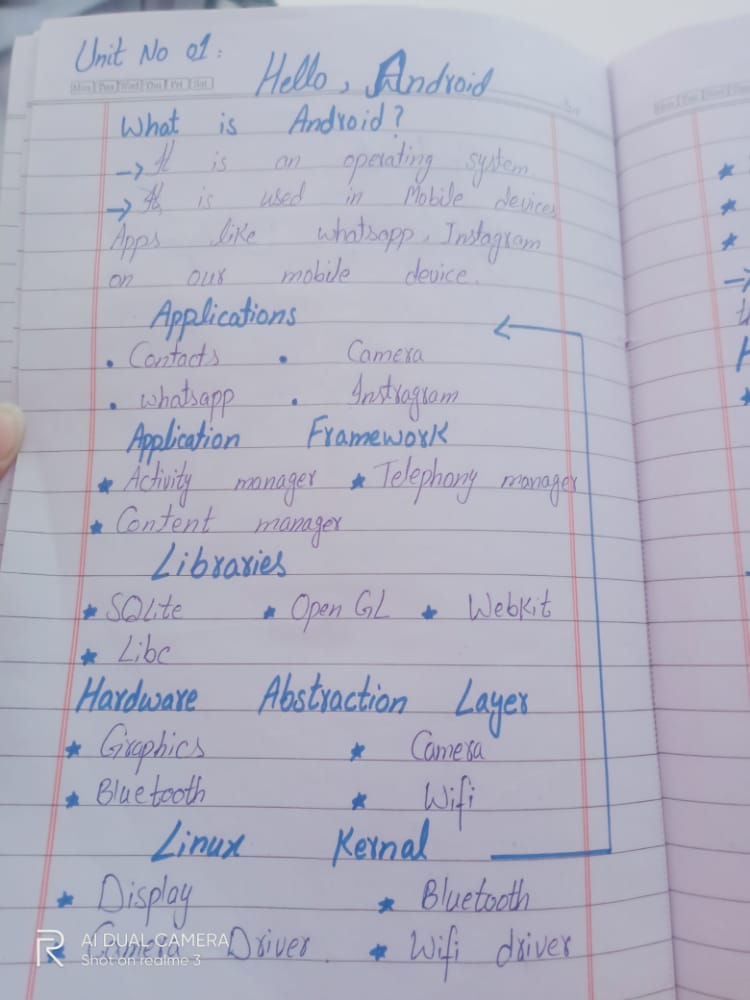 Unit No 01:
Mon Tue Wed Thu Fri Sat
Hello, Android
What is Android?
→ It is an operating system
→ It is used in Mobile devices
Apps like whatsapp, Instagram
on our mobile device.
Applications
• Contacts • Camera
• whatsapp • Instragram
Application Framework
★ Activity manager ★ Telephony manager
★ Content manager
Libraries
★ SQLite ★ Open GL ★ Webkit
★ Libc
Hardware Abstraction Layer
★ Graphics ★ Camera
★ Bluetooth ★ Wifi
Linux Kernal
★ Display ★ Bluetooth
★ Camera Driver. ★ Wifi driver
R AI DUAL CAMERA
Shot on realme 3